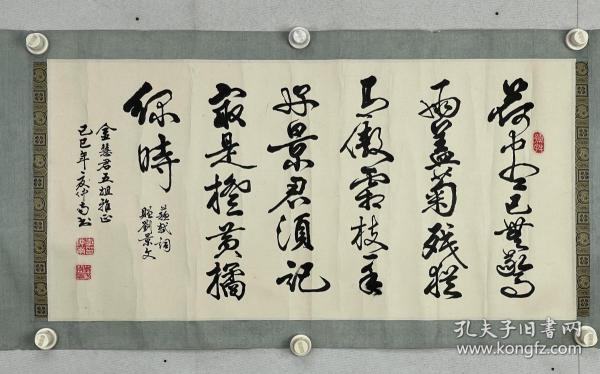 荷尽已無擎
雨蓋菊残猶
有傲霜枝一年
好景君須記
最是橙黄橘
绿時
蘇軾詞
贈劉景文
金慧君五姐雅正
己巳年書
孔夫子旧书网
www.kongfz.com